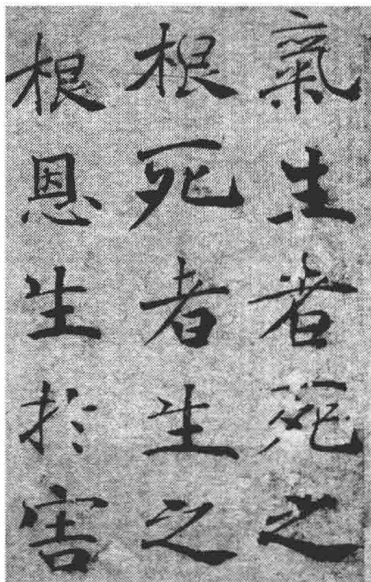 氣生者死之
根死者生之
根恩生於害